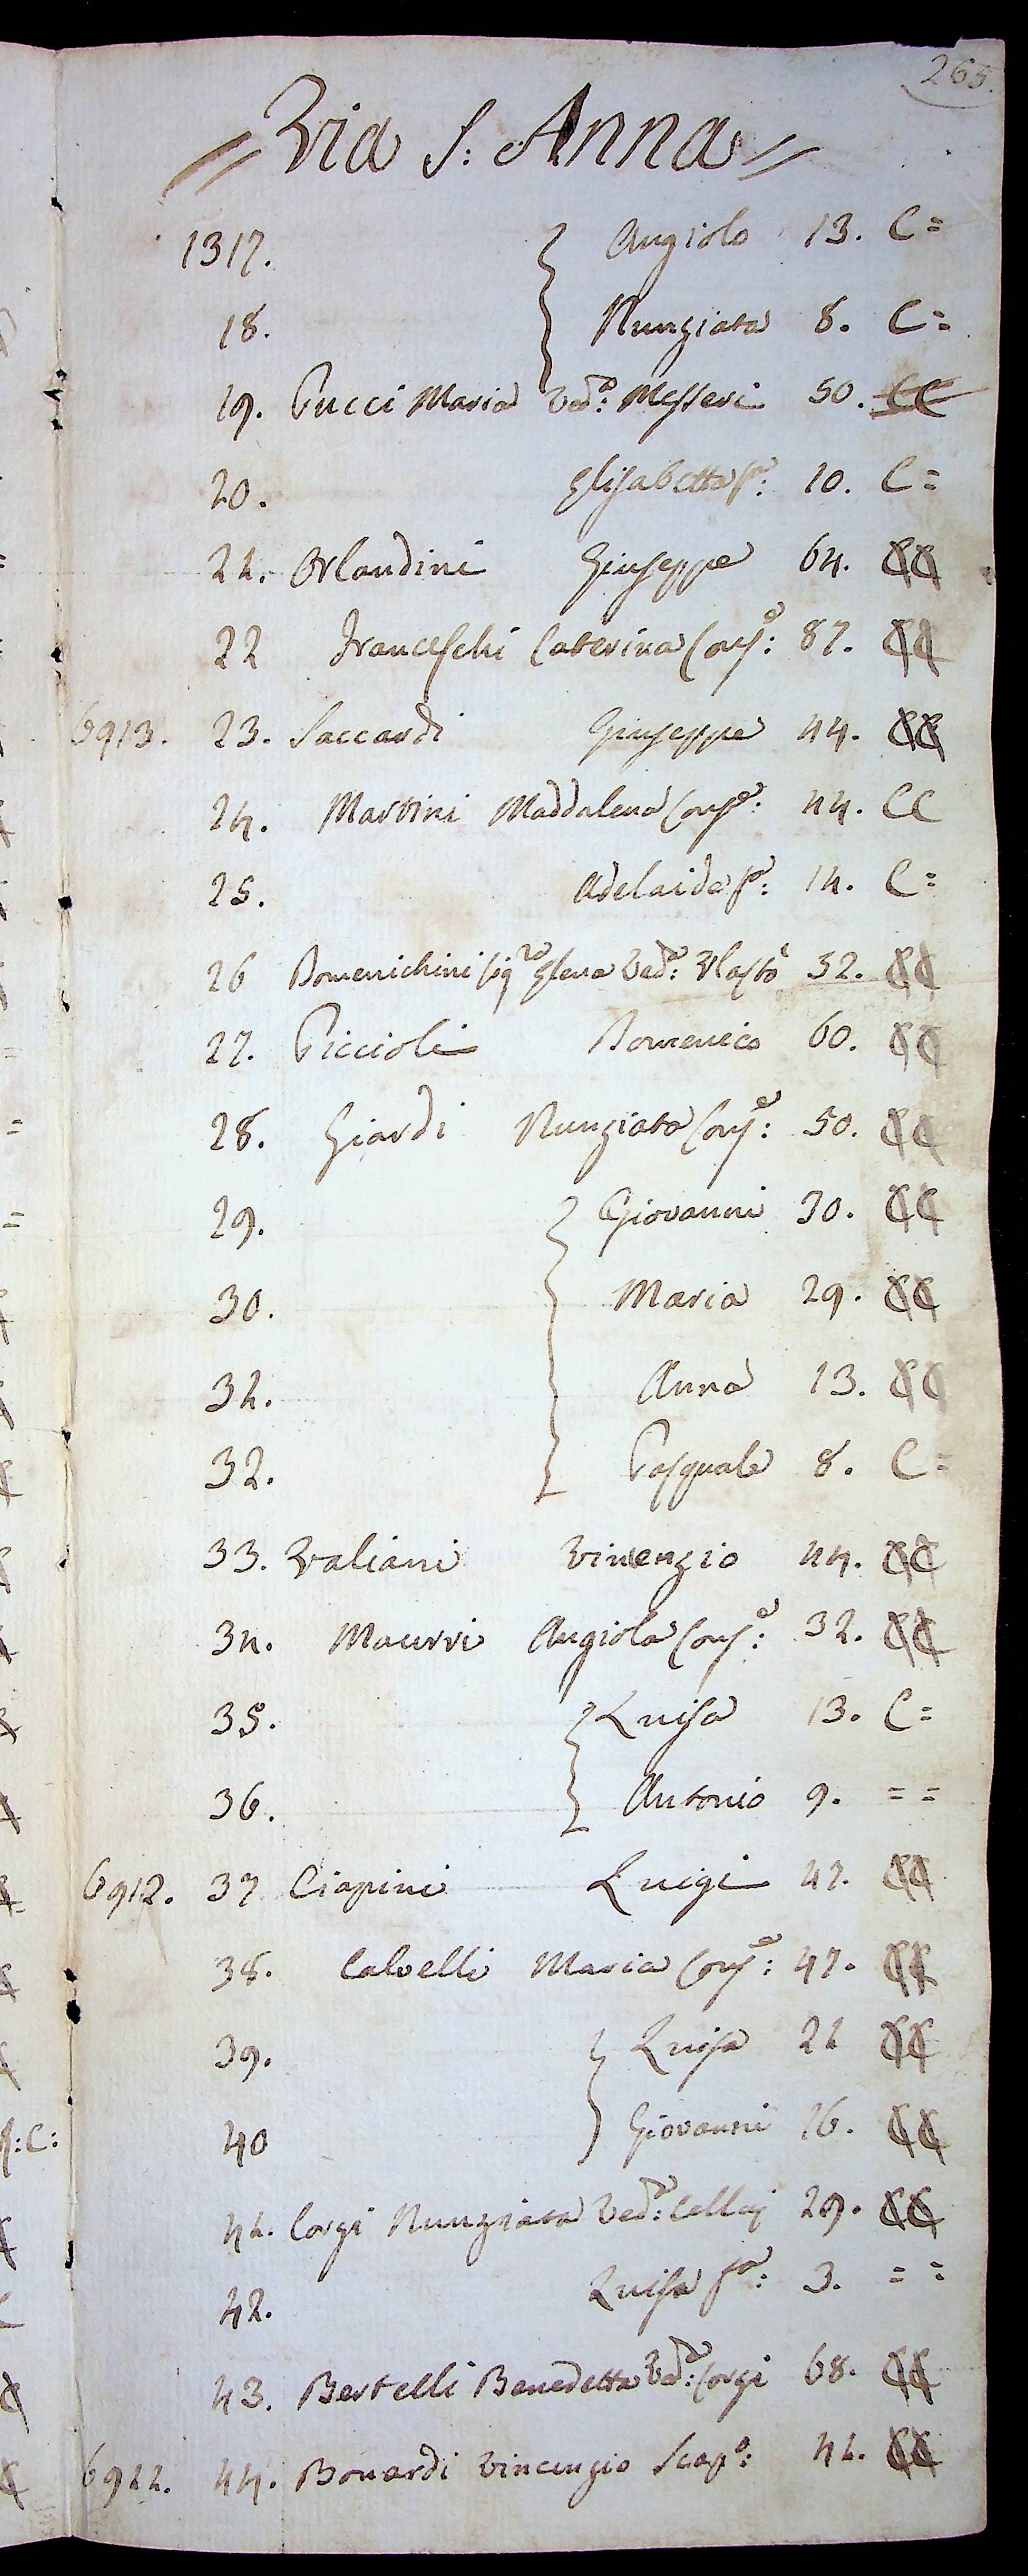 265.
= Via S: Anna =
1317. Angiolo 13. C=
18. Nunziata 8. C=
19. Pucci Maria Ved:a Messeri 50. CC
20. Elisabetta f:a 10. C=
21. Orlandini Giuseppe 64. CC
22 Franceschi Caterina Cons:e 87. CC
6913. 23. Saccardi Giuseppe 44. CC
24. Martini Maddalena Cons:e 44. CC
25. Adelaide f:a 14. C=
26 Domenichini Sig:ra Elena Ved:a Vlastò 32. CC
27. Piccioli Domenico 60. CC
28. Giardi Nunziata Cons:e 50. CC
29. Giovanni 30. CC
30. Maria 29. CC
31. Anna 13. CC
32. Pasquale 8. C=
33. Valiani Vincenzio 44. CC
34. Maurri Angiola Cons:e 32. CC
35. Luisa 13. C=
36. Antonio 9. = =
6912. 37 Ciapini Luigi 47. CC
38. Calvelli Maria Cons:e 47. CC
39. Luisa 21 CC
40 Giovanni 16. CC
41. Corgi Nunziata Ved:a Cellaj 29. CC
42. Luisa f:a 3. = =
43. Bertelli Benedetta Ved:a Corgi 68. CC
6911. 44. Bonardi Vincenzio Scap:o 41. CC